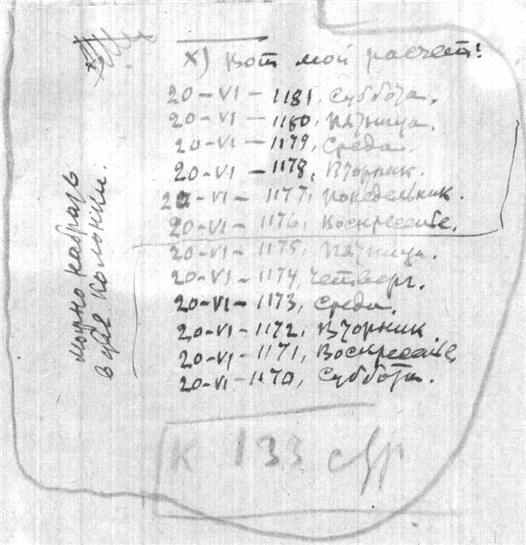 х) Вот мой расчет:
20-VI-1181, Суббота.
20-VI-1180, Пятница.
20-VI-1179, Среда.
20-VI-1178, Вторник.
20-VI-1177, Понедельник.
20-VI-1176, Воскресенье.
20-VI-1175, Пятница.
20-VI-1174, Четверг.
20-VI-1173, Среда.
20-VI-1172, Вторник
20-VI-1171, Воскресенье,
20-VI-1170, Суббота.
К 133 стр
можно набрать
в две колонки.